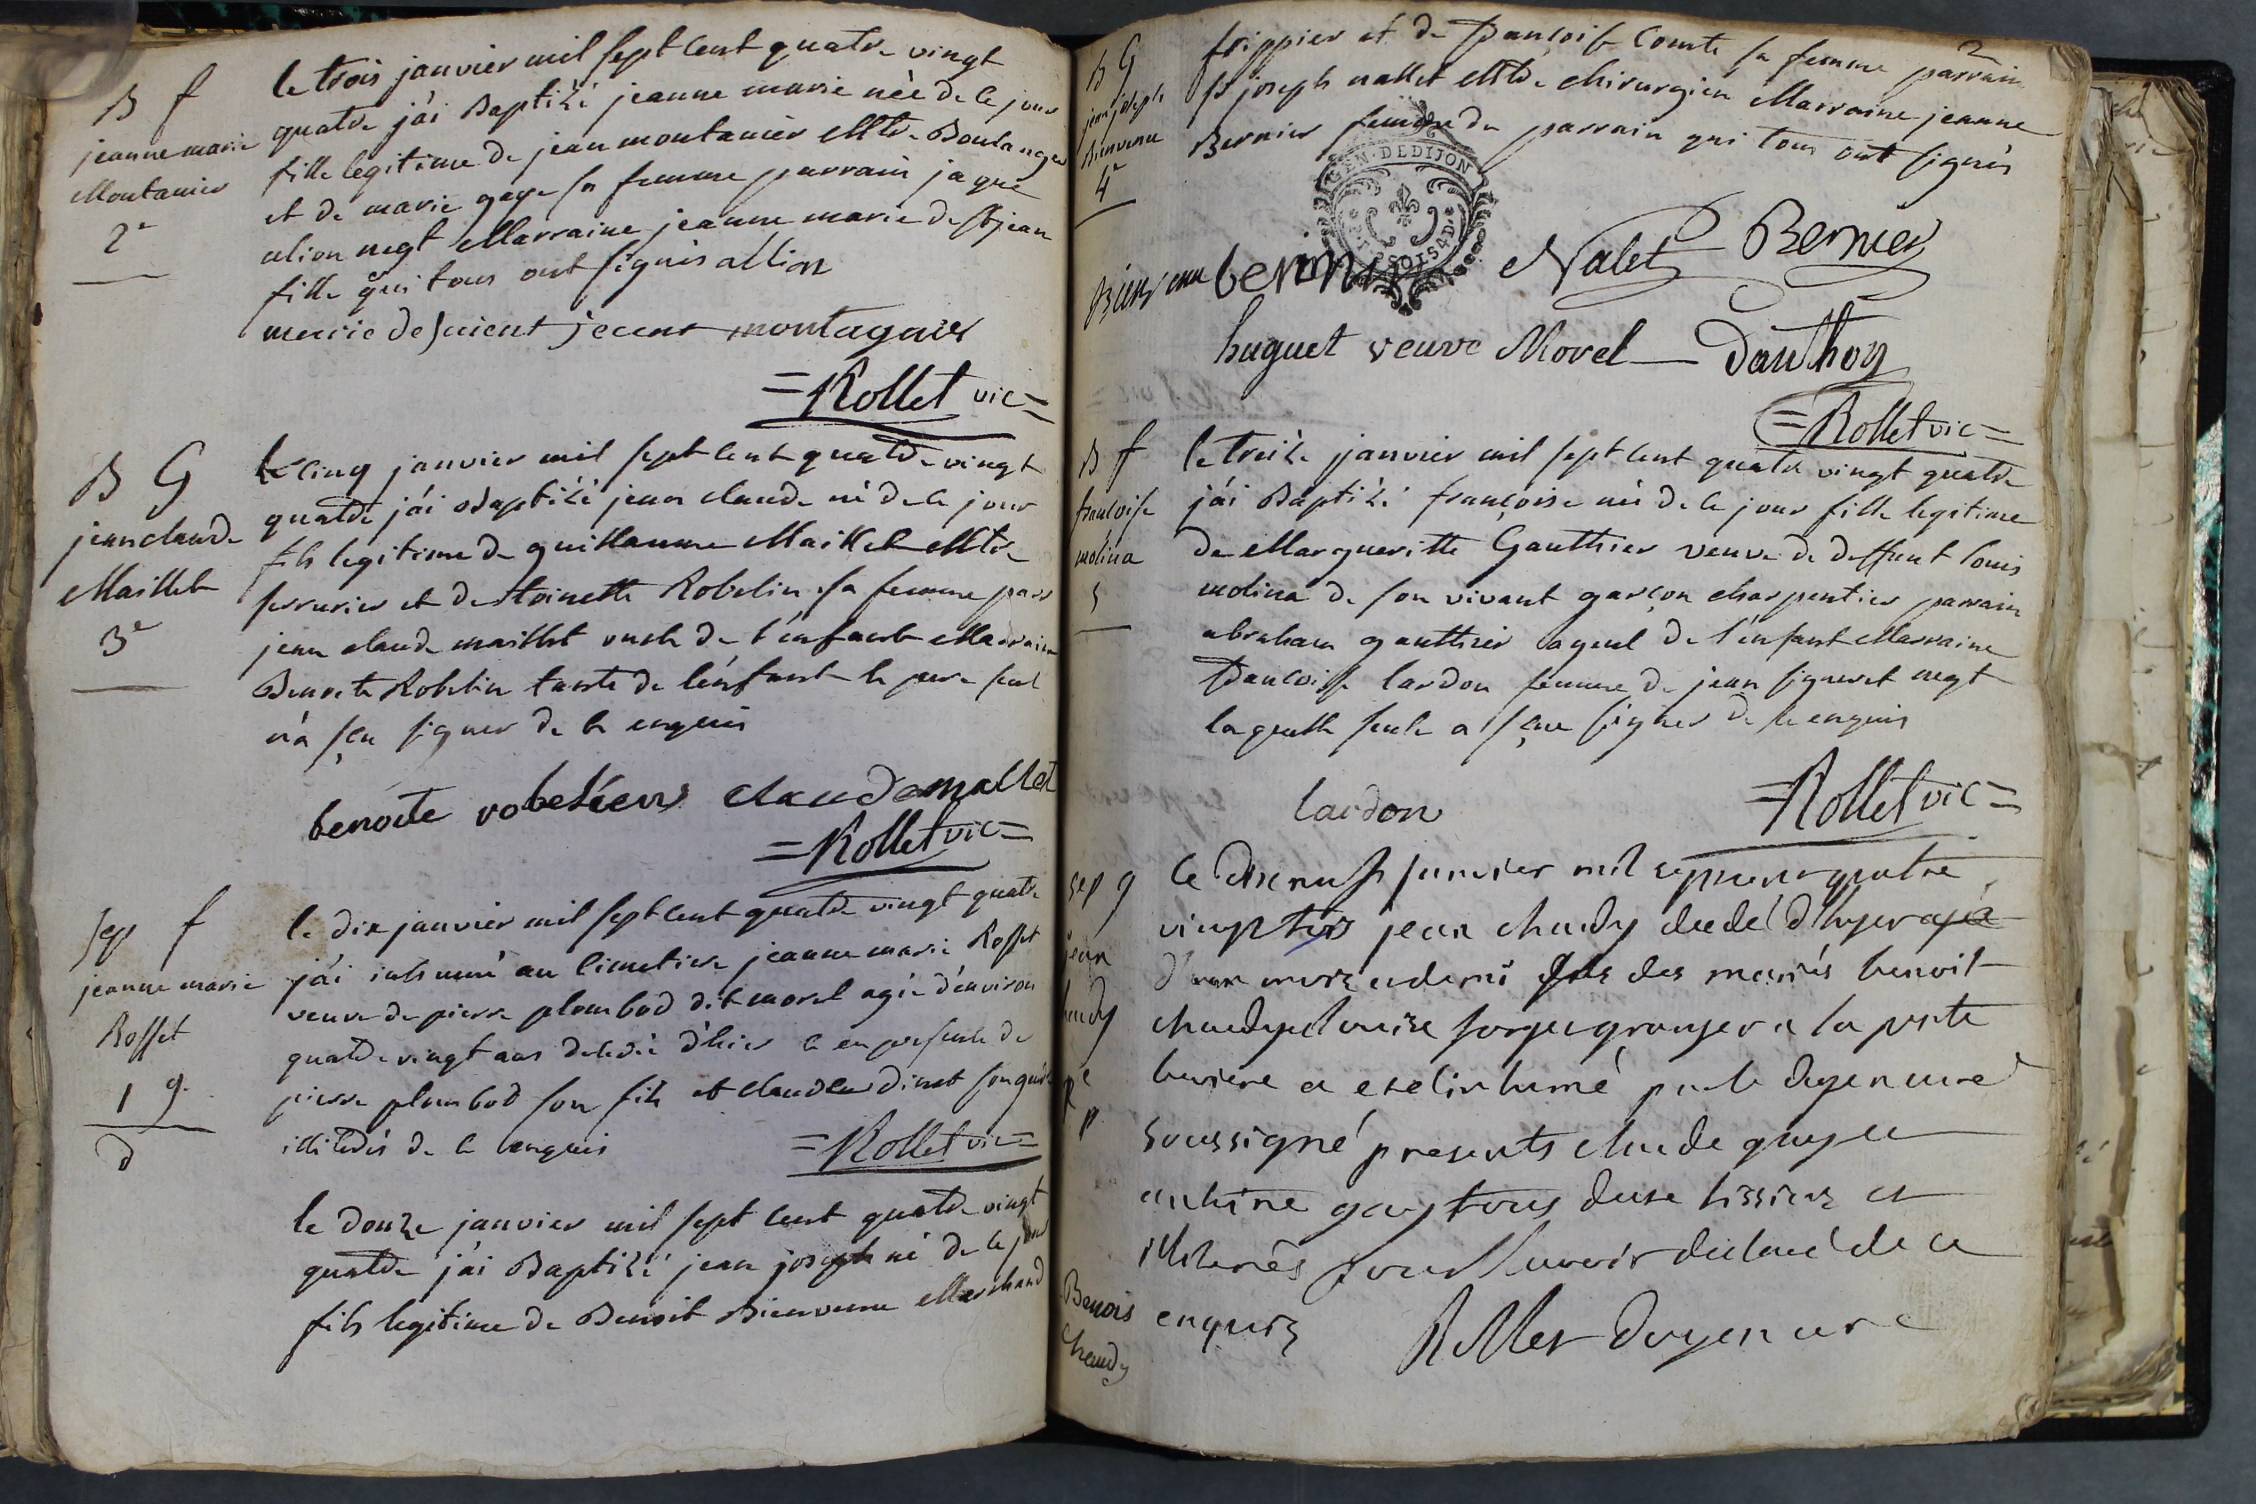 B f
jeanne marie
Montanier
2e
le trois janvier mil sept cent quatre vingt
quatre j'ai Baptizé jeanne marie née de ce jour
fille legitime de jean montanier Mtre Boulanger
et de marie gage sa femme parrain jaque
alion negt Marraine jeanne marie de st jean
fille qui tous ont signés allion
marie de saient jean montagnier
= Rollet vic =
B G
jean claude
Maillet
3e
le cinq janvier mil sept cent quatre vingt
quatre j'ai Baptizé jean claude né de ce jour
fils legitime de guillaume Maillet Mtre
serrurier et de toinette Robelin sa femme parr
jean claude maillet oncle de l'enfant Marraine
Benoite Robelin tante de l'enfant le pere seul
n'a sçu signer de ce enquis
benoite claude mallet
= Rollet vic =
sep f
jeanne marie
Rosset
1 g.
d
le dix janvier mil sept cent quatre vingt quatre
j'ai inhumé au cimetiere jeanne marie Rosset
veuve de pierre plombod dit morel agée d'environ
quatre vingt ans decedée d'hier ce en presence de
pierre plombod son fils et claude dinet son
illiterés de ce enquis = Rollet vic =
le douze janvier mil sept cent quatre vingt
quatre j'ai Baptizé jean joseph né de ce jour
fils legitime de Benoit Bienvenue Marchand
2
B G
jean joseph
Bienvenue
4e
frippier et de françoise Comte sa femme parrain
sr joseph nallet Mtre chirurgien Marraine jeanne
Bernier femme du parrain qui tous ont signés
GEN. DE DIJON
Bienvenu Nalet Bernier
huguet veuve Morel Dauthoy
= Rollet vic =
B f
francoise
molina
5
le treize janvier mil sept cent quatre vingt quatre
j'ai Baptizé françoise née de ce jour fille legitime
de Margueritte Gauthier veuve de deffunt louis
molina de son vivant garçon charpentier parrain
abraham gauthier ayeul de l'enfant Marraine
francoise lardon femme de jean signeret negt
laquelle seule a sçue signer de ce enquis
lardon = Rollet vic =
sep g
jean
Benois
Chaudy
le dixneuf janvier mil sept cent quatre
vingt jean chaudy decedé d'hyer agé
d'un mois et demi fils des mariés benoit
chaudy louise forge granger a la
a eté inhumé par le doyen curé
soussigné presents claude
antoine gay tous deux tissiers et
illiterés pour l'avoir declaré de ce
enquis Rollet doyen curé